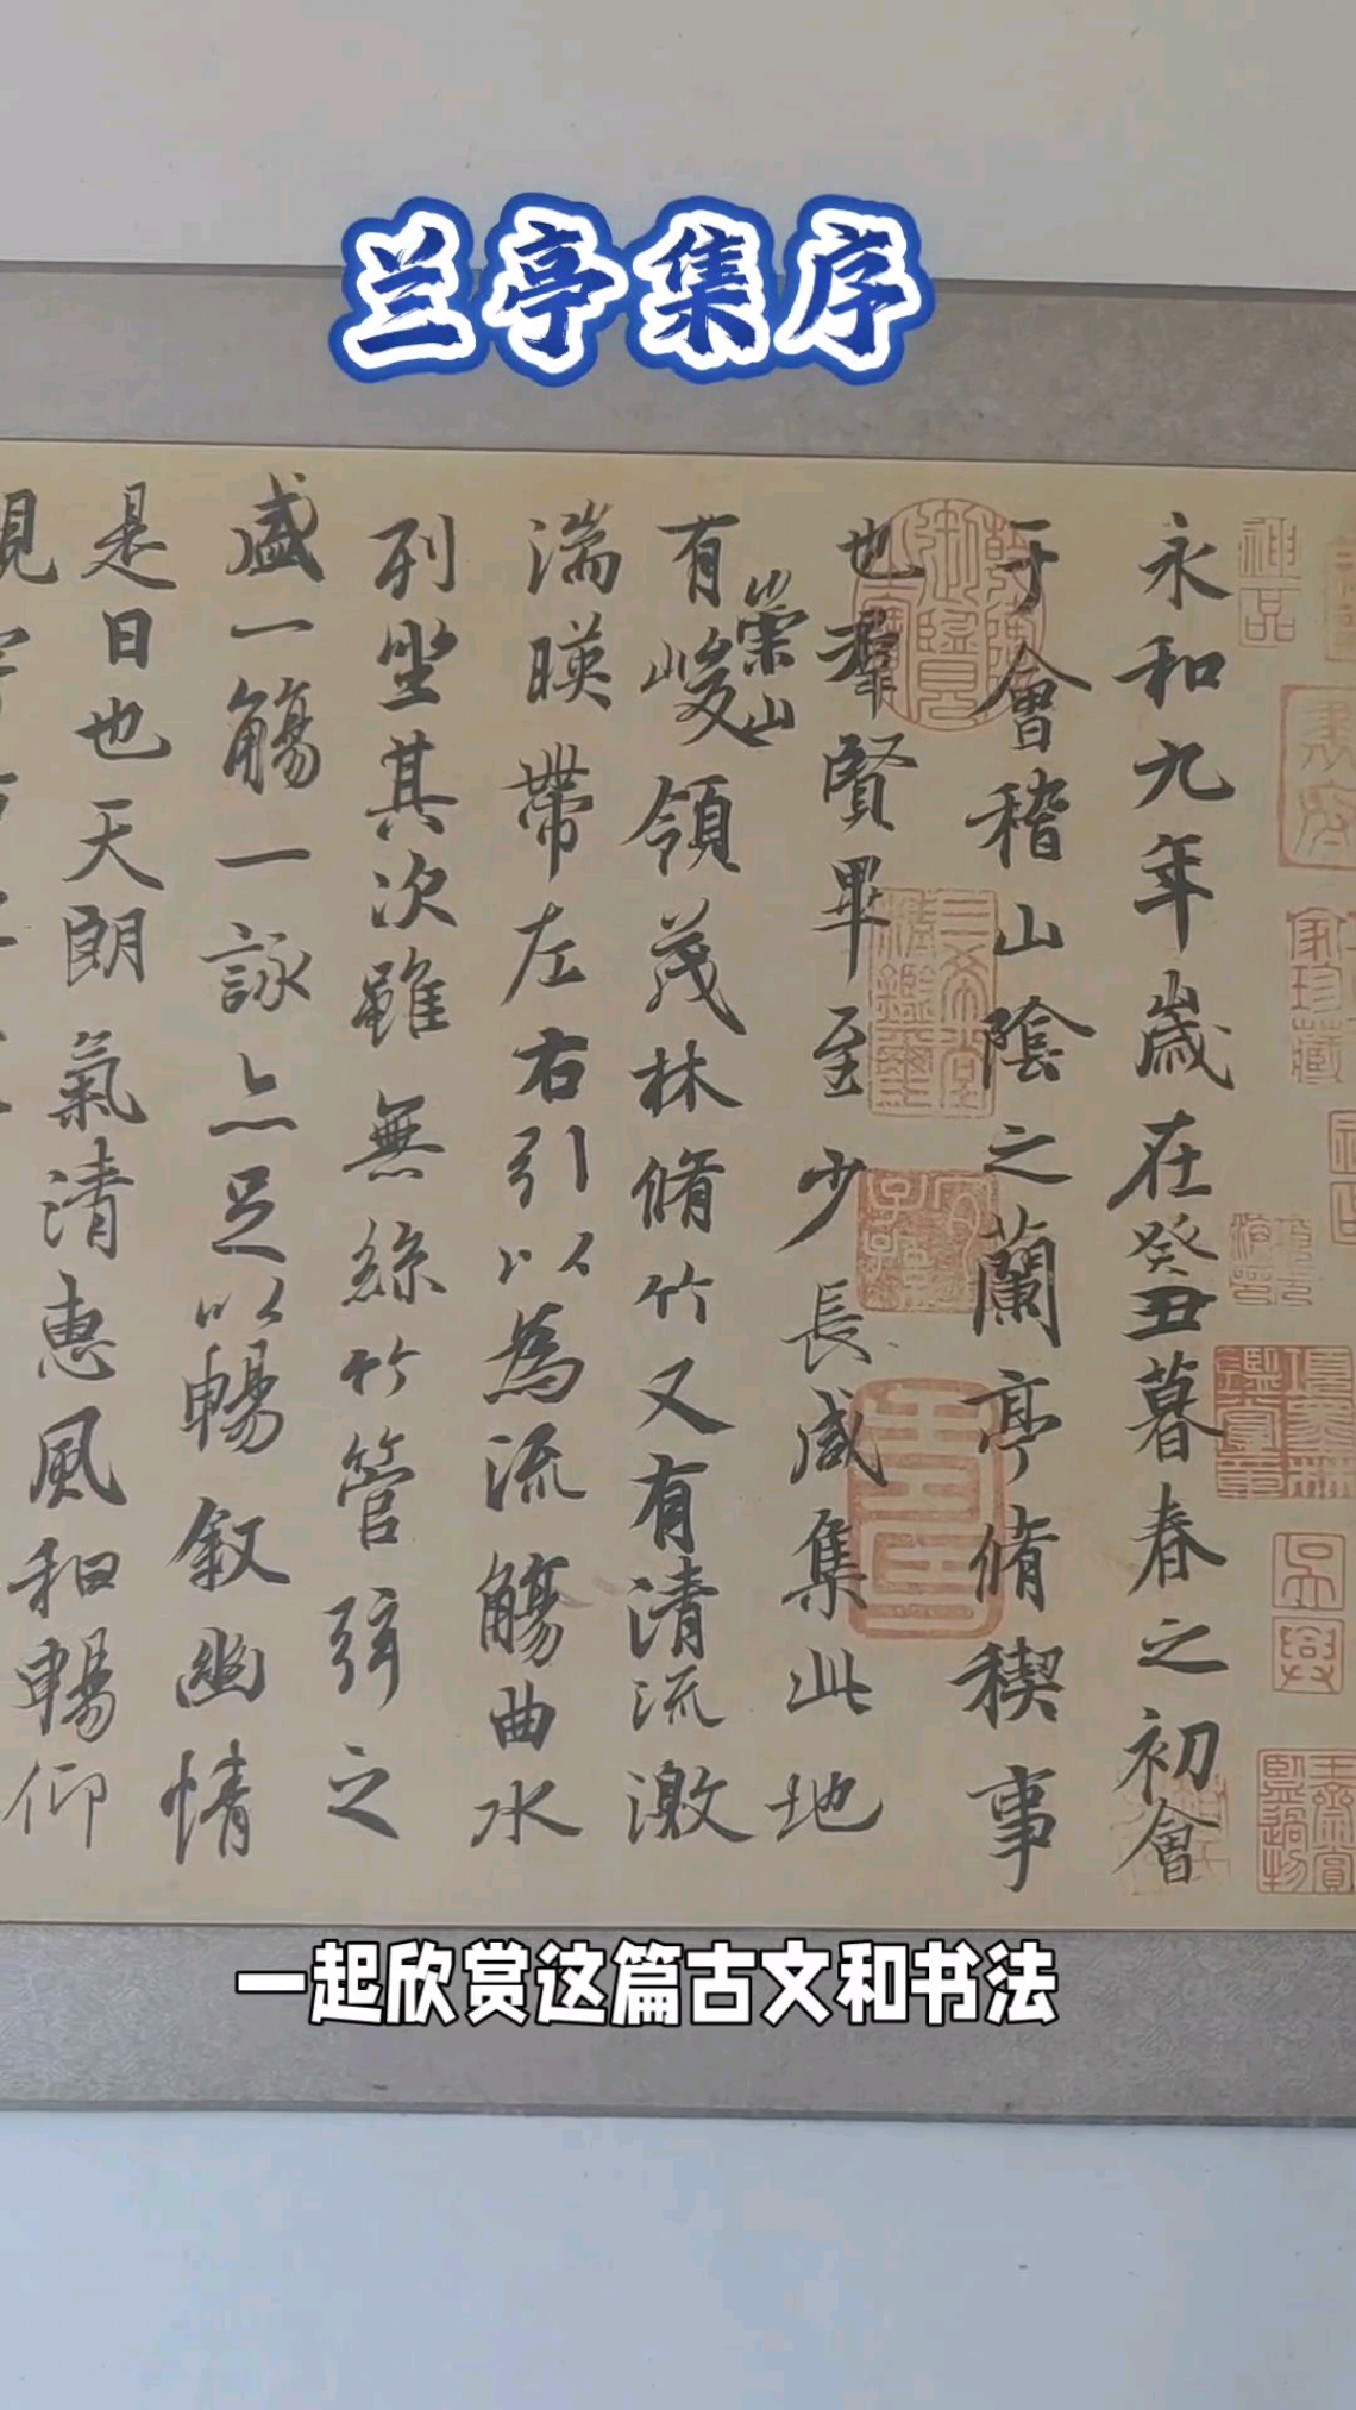 兰亭集序
永和九年歲在癸丑暮春之初會
于會稽山陰之蘭亭脩稧事
也群賢畢至少長咸集此地
有崇山峻領茂林脩竹又有清流激
湍暎帶左右引以為流觴曲水
列坐其次雖無絲竹管弦之
盛一觴一詠亦足以暢敘幽情
是日也天朗氣清惠風和暢仰
觀
一起欣赏这篇古文和书法
神品